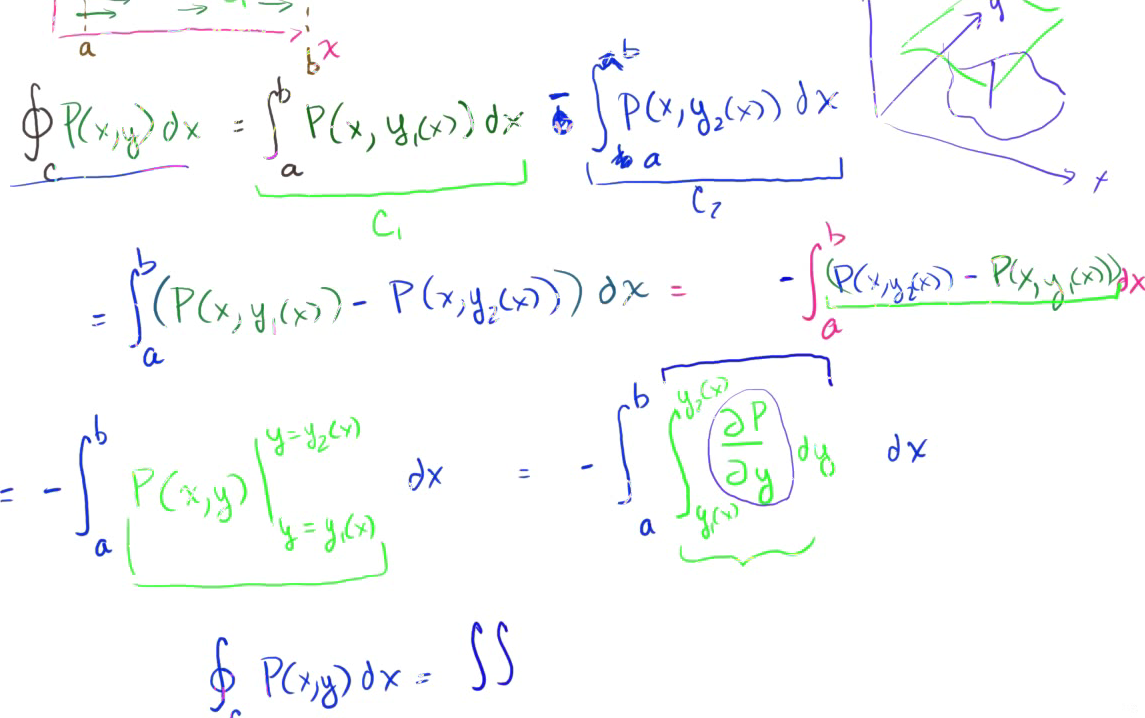 a b x y x
∮_C P(x,y) dx = ∫_a^b P(x, y₁(x)) dx - ∫_a^b P(x, y₂(x)) dx
C₁ C₂
= ∫_a^b (P(x, y₁(x)) - P(x, y₂(x))) dx = - ∫_a^b (P(x, y₂(x)) - P(x, y₁(x))) dx
= - ∫_a^b P(x,y) |_{y = y₁(x)}^{y = y₂(x)} dx = - ∫_a^b ∫_{y₁(x)}^{y₂(x)} ∂P/∂y dy dx
∮_C P(x,y) dx = ∬